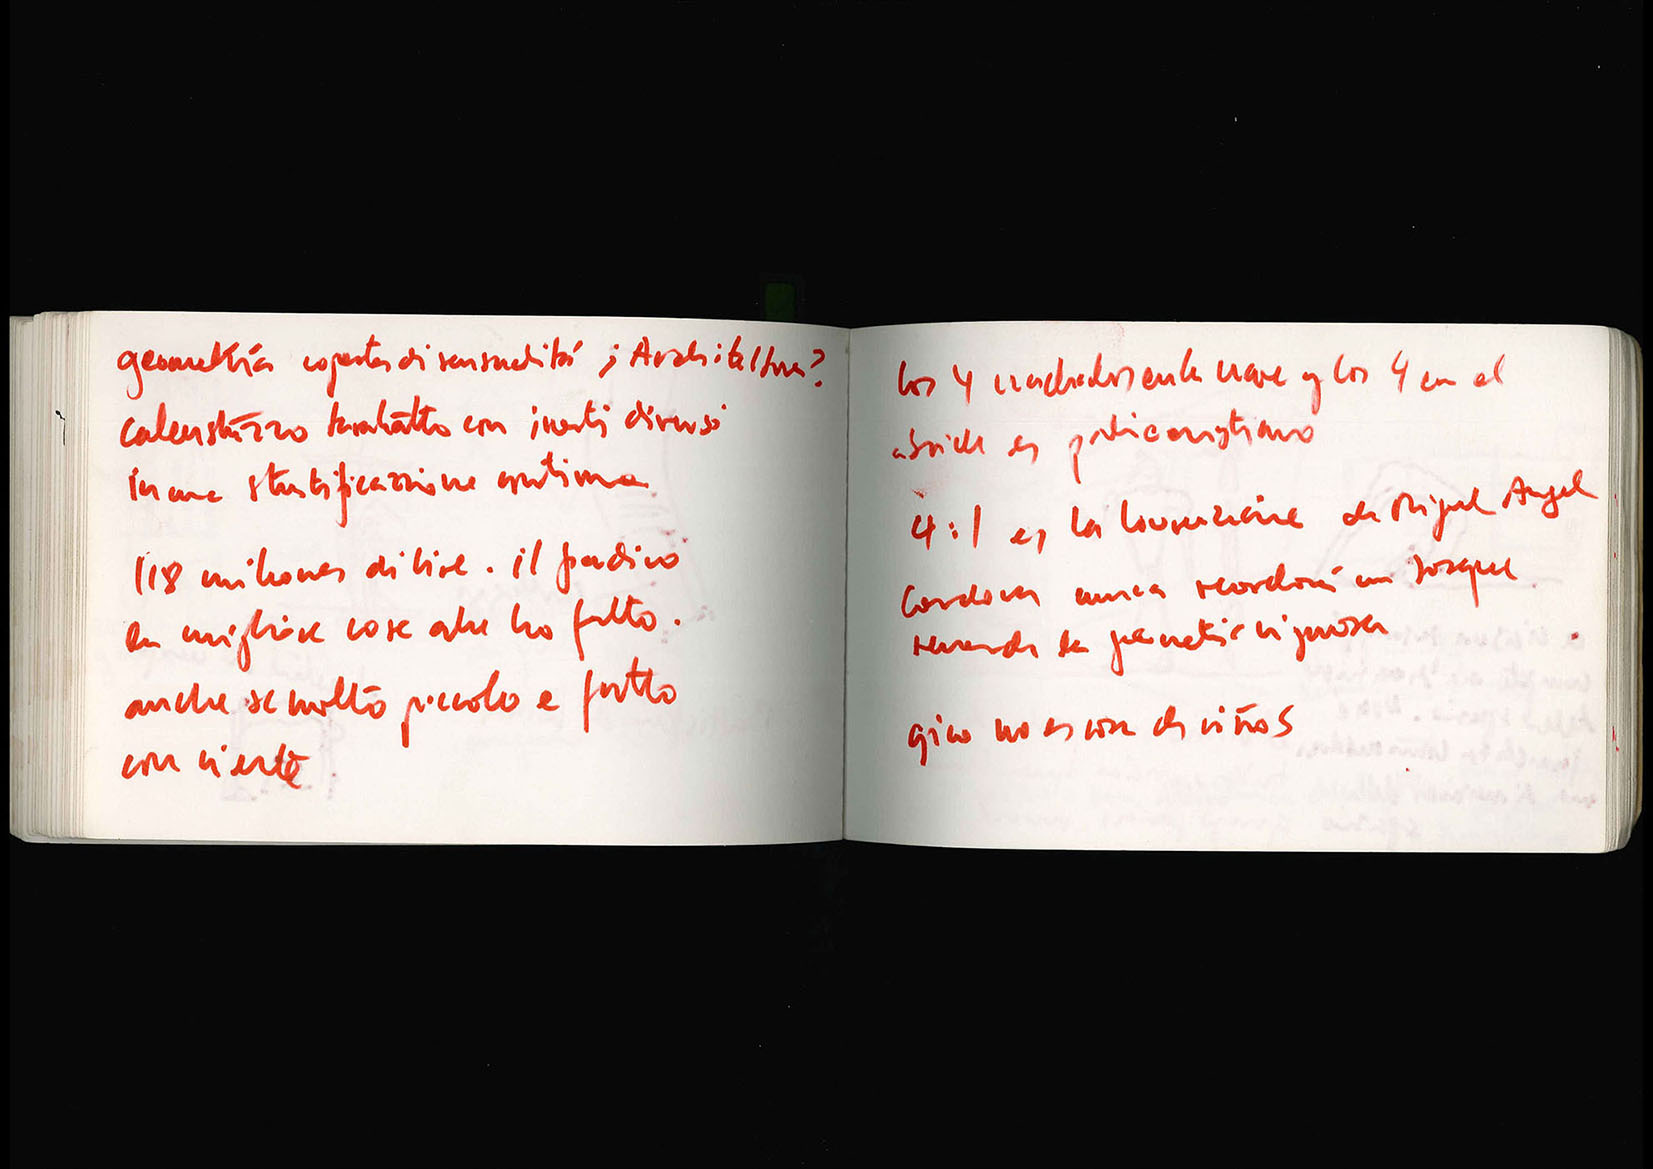 geometría coperta di sensualitá ¿Architettura?
calcestruzzo battuto con inerti diversi
in una stratificazione continua
118 miliones di lire. il giardino
la migliore cose che ho fatto.
anche se molto piccolo e fatto
con niente
los 4 cuadrados en la nave y los 4 en el
abside es
4:1 es la de Miguel Angel
Cordova nunca recordará un bosque
la geometria rigurosa
gico no es cosa de niños